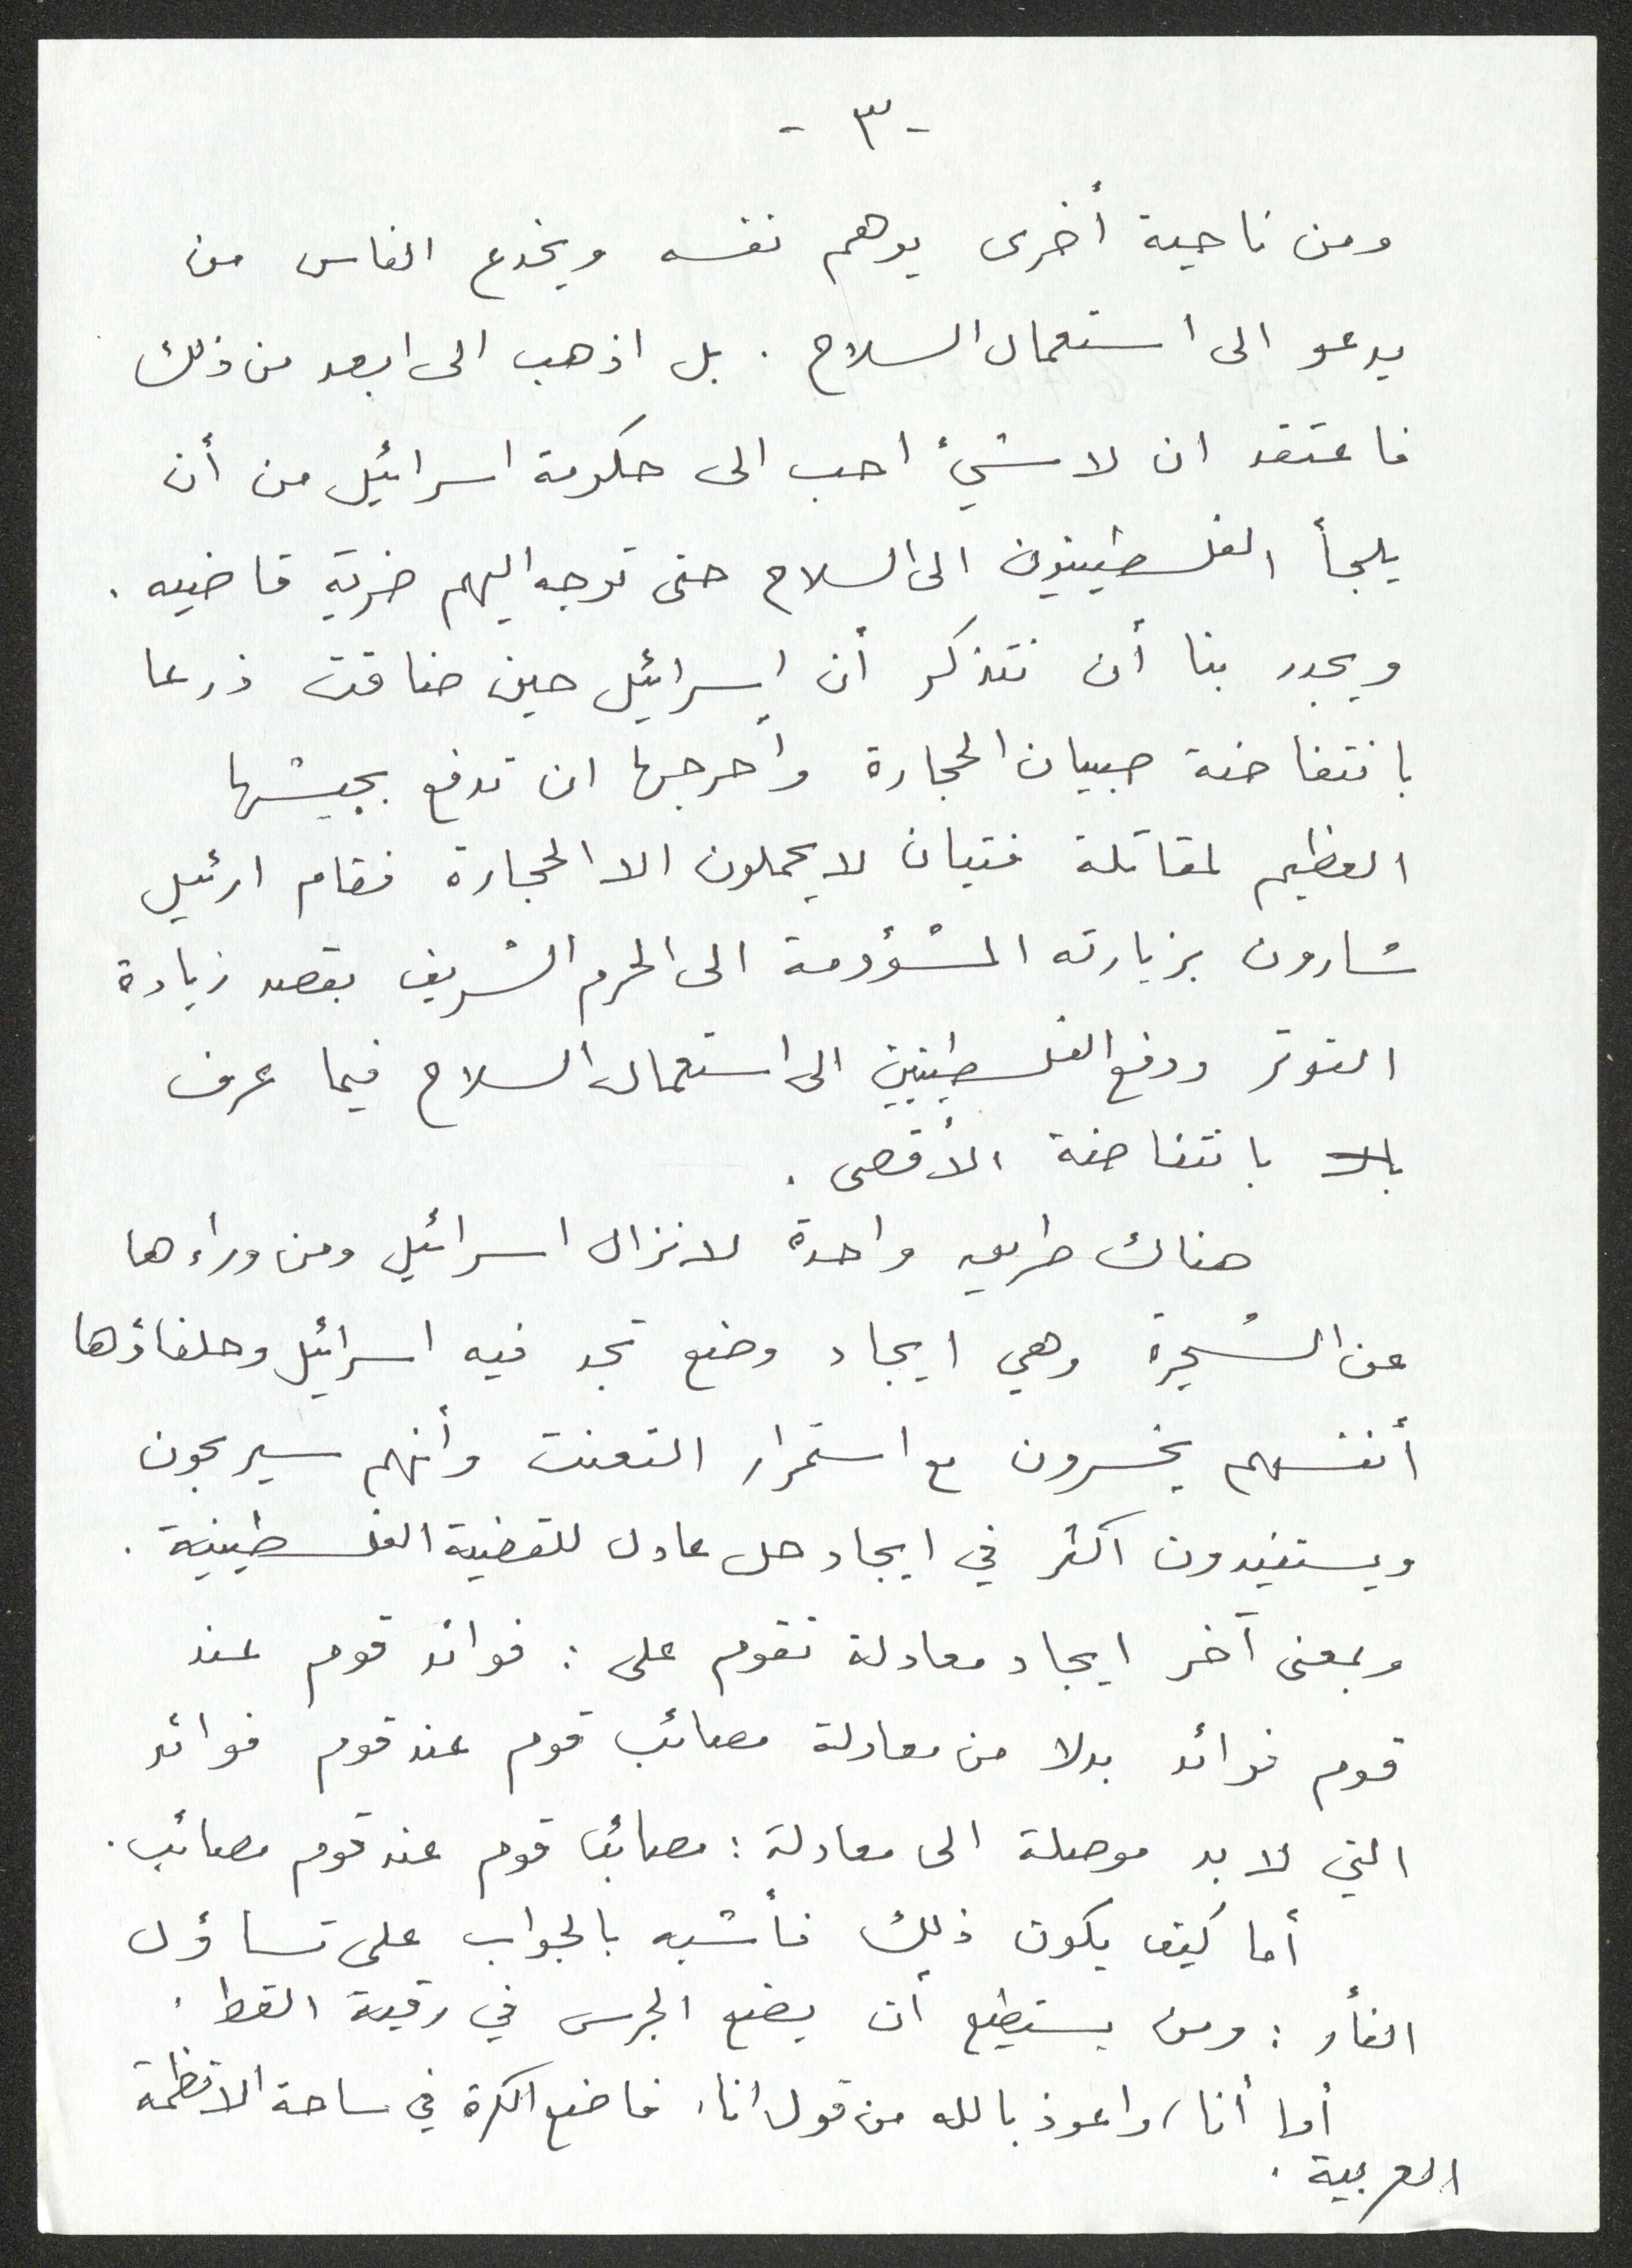 - ٣ -
ومن ناحية أخرى يوهم نفسه ويخدع الناس من
يدعو الى استعمال السلاح . بل اذهب الى ابعد من ذلك
فاعتقد ان لا شيء احب الى حكومة اسرائيل من أن
يلجأ الفلسطينيون الى السلاح حتى توجه اليهم ضربة قاضيه .
ويجدر بنا أن نتذكر أن إسرائيل حين ضاقت ذرعا
بانتفاضة صبيان الحجارة وأحرجها ان تدفع بجيشها
العظيم لمقاتلة فتيان لا يحملون الا الحجارة فقام ارئيل
شارون بزيارته المشؤومة الى الحرم الشريف بقصد زيادة
التوتر ودفع الفلسطينيين الى استعمال السلاح فيما عرف
بالا بانتفاضة الأقصى .
هناك طريقه واحدة لانزال اسرائيل ومن وراءها
عن الشجرة وهي ايجاد وضع تجد فيه اسرائيل وحلفاؤها
أنفسهم يخسرون مع استمرار التعنت وأنهم سيربحون
ويستفيدون اكثر في ايجاد حل عادل للقضية الفلسطينية .
وبمعنى آخر ايجاد معادلة تقوم على : فوائد قوم عند
قوم فوائد بدلا من معادلة مصائب قوم عند قوم فوائد
التي لا بد موصلة الى معادلة : مصائب قوم عند قوم مصائب .
أما كيف يكون ذلك فأشبه بالجواب على تساؤل
الفأر : ومن يستطيع أن يضع الجرس في رقبة القط .
أما أنا، واعوذ بالله من قول انا، فاضع الكرة في ساحة الانظمة
العربية .